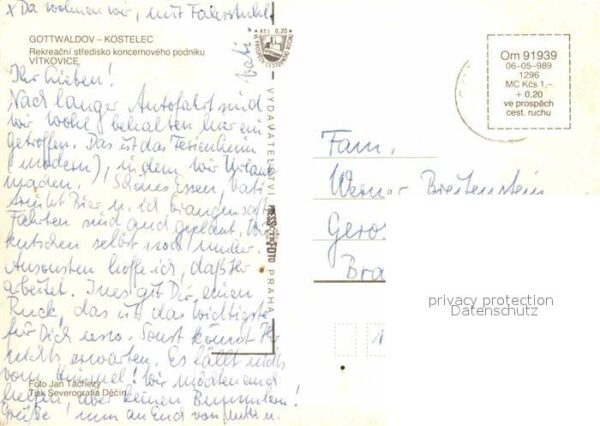 x Da wohnen wir, mit Fahrstuhl.
GOTTWALDOV – KOSTELEC
Rekreační středisko koncernového podniku
VÍTKOVICE
Kčs 0,20
VE PROSPĚCH CESTOVNÍHO RUCHU
Ihr Lieben!
Nach langer Autofahrt sind
wir wohl behalten hier ein
getroffen. Das ist das Ferienheim
(modern), in dem wir Urlaub
machen. Schönes Essen, Vati
trinkt Bier u. ich Orangensaft.
Fahrten sind auch geplant. Wir
kutschen selbst noch umher.
Ansonsten hoffe ich, daß Ihr
arbeitet. Ines gib Dir einen
Ruck, das ist das wichtigste
für Dich. Sonst könnt Ihr
nichts erwarten. Es fällt nichts
vom Himmel! Wir möchten auch
helfen, aber keinen Bummlern!
Grüße
VYDAVATELSTVÍ
PRESSFOTO
PRAHA
Foto Jan Tachezy
Tisk Severografia Děčín
Om 91939
06-05-989
1296
MC Kčs 1,–
+ 0,20
ve prospěch
cest. ruchu
Fam.
Werner Breitenstein
Gero
Bra
privacy protection
Datenschutz